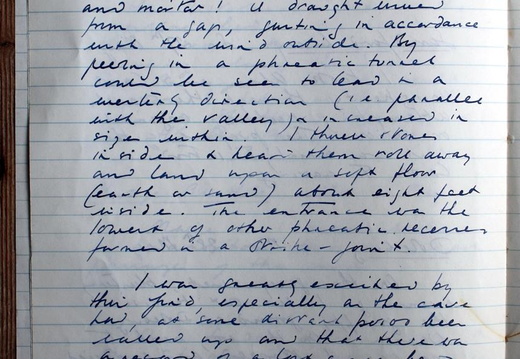 and mortar! A draught issued
from a gap, gusting in accordance
with the wind outside. By
peering in a phreatic tunnel
could be seen to lead in a
westerly direction (i.e. parallel
with the valley) & increased in
size within. I threw stones
inside & heard them roll away
and land upon a soft floor
(earth or sand) about eight feet
inside. The entrance was the
lowest of other phreatic recesses
formed in a strike-joint.
I was greatly excited by
this find, especially as the cave
had, at some distant period been
walled up and that there was
a of a lost cave